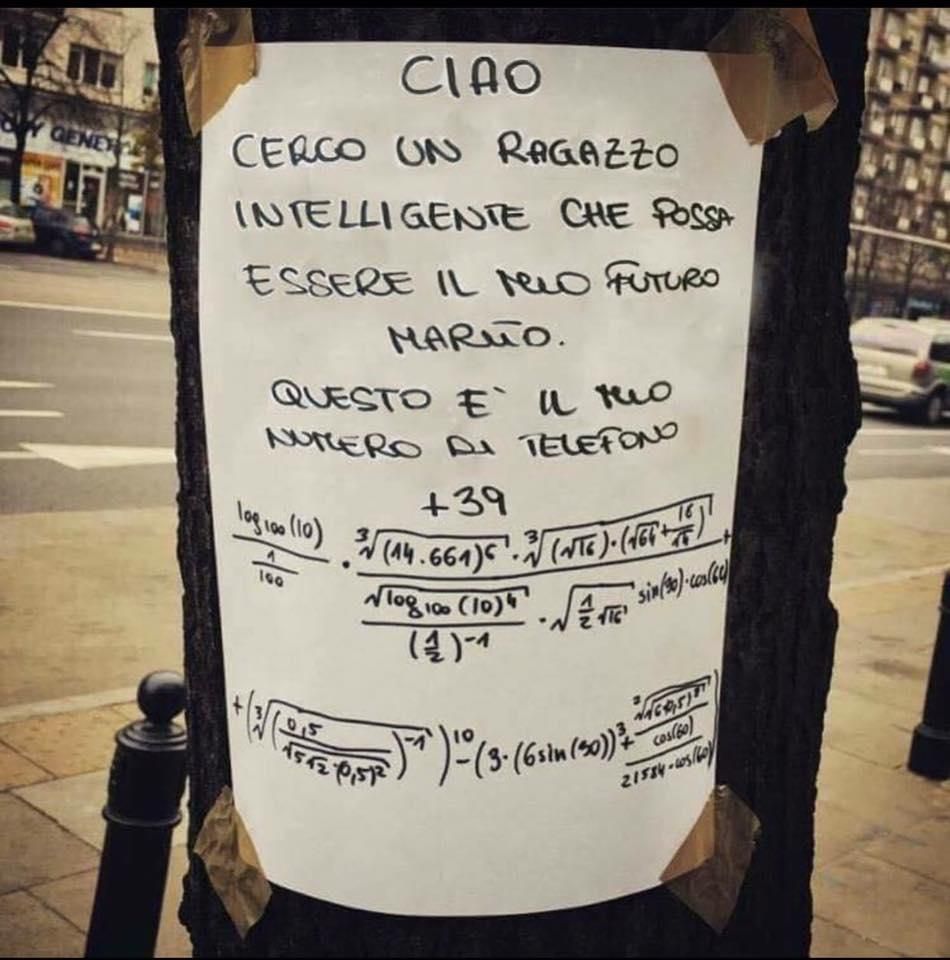 CIAO
CERCO UN RAGAZZO
INTELLIGENTE CHE POSSA
ESSERE IL MIO FUTURO
MARITO.
QUESTO E` IL MIO
NUMERO DI TELEFONO
+39
log₁₀₀(10) / (1/100) · ∛(14.661)⁶ · ∛((√16)·(√64 + 16/15)) +
√log₁₀₀(10)⁴ / (1/2)⁻¹ · √(1/2 √16) sin(90)·cos(60)
+(∛(0,5 / √5√2·(0,5)²)⁻¹)¹⁰ - (3·(6sin(90))³ +
cos(60)
21584·cos(60)
GENER